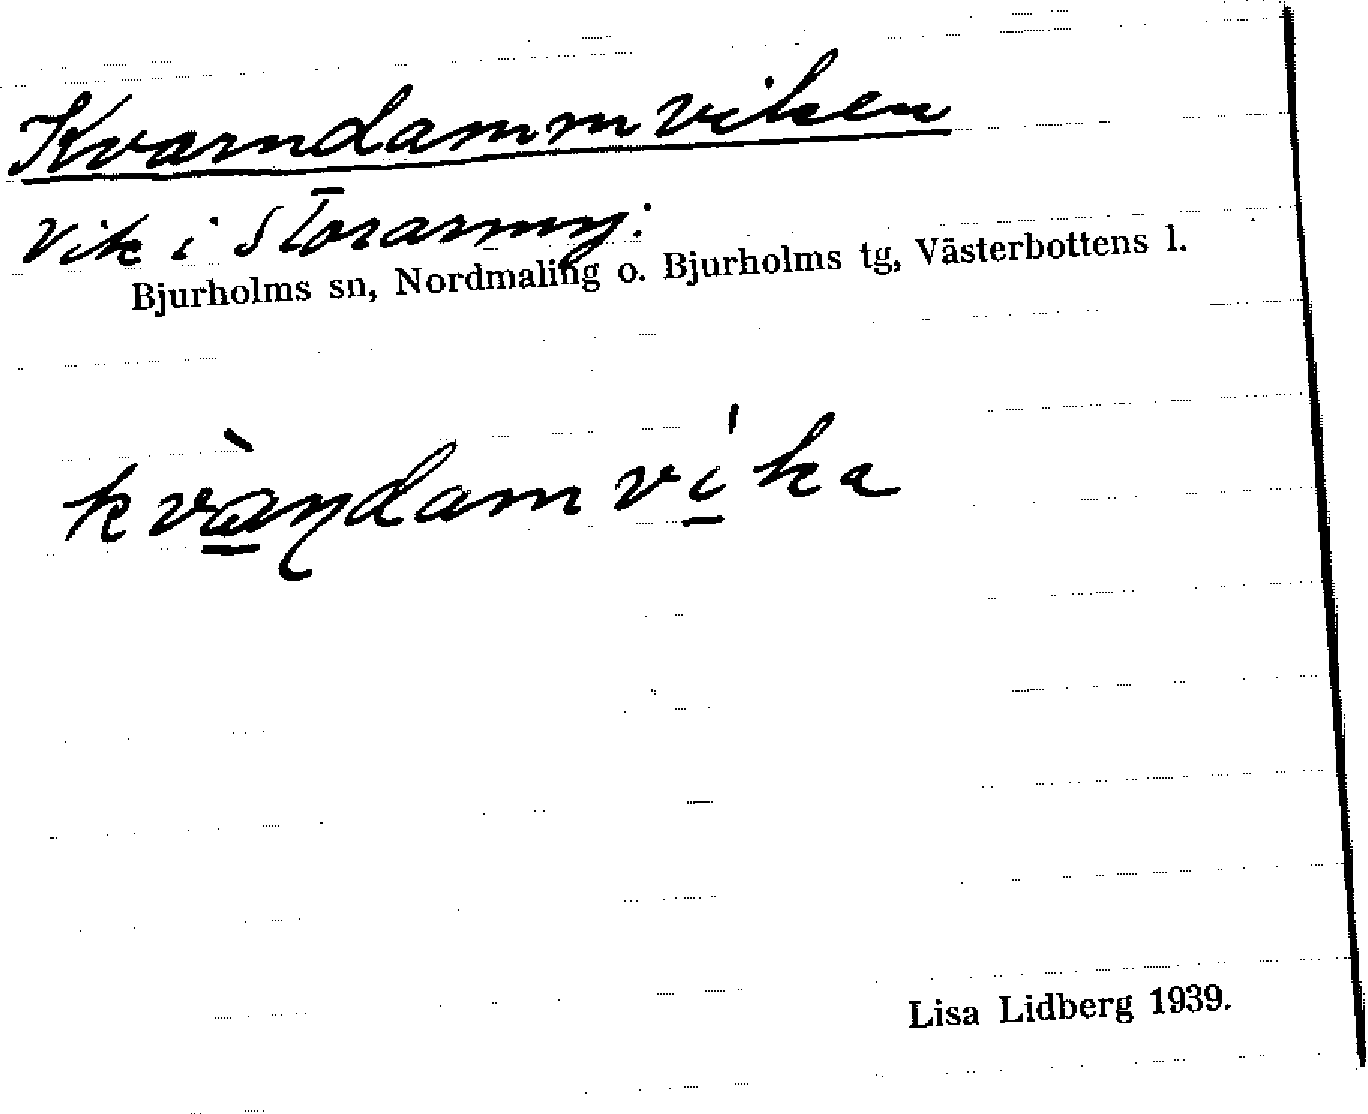 Kvarndammviken
Vik i Storarmy.
Bjurholms sn, Nordmaling o. Bjurholms tg, Västerbottens l.
kvàṇdamvíka
Lisa Lidberg 1939.